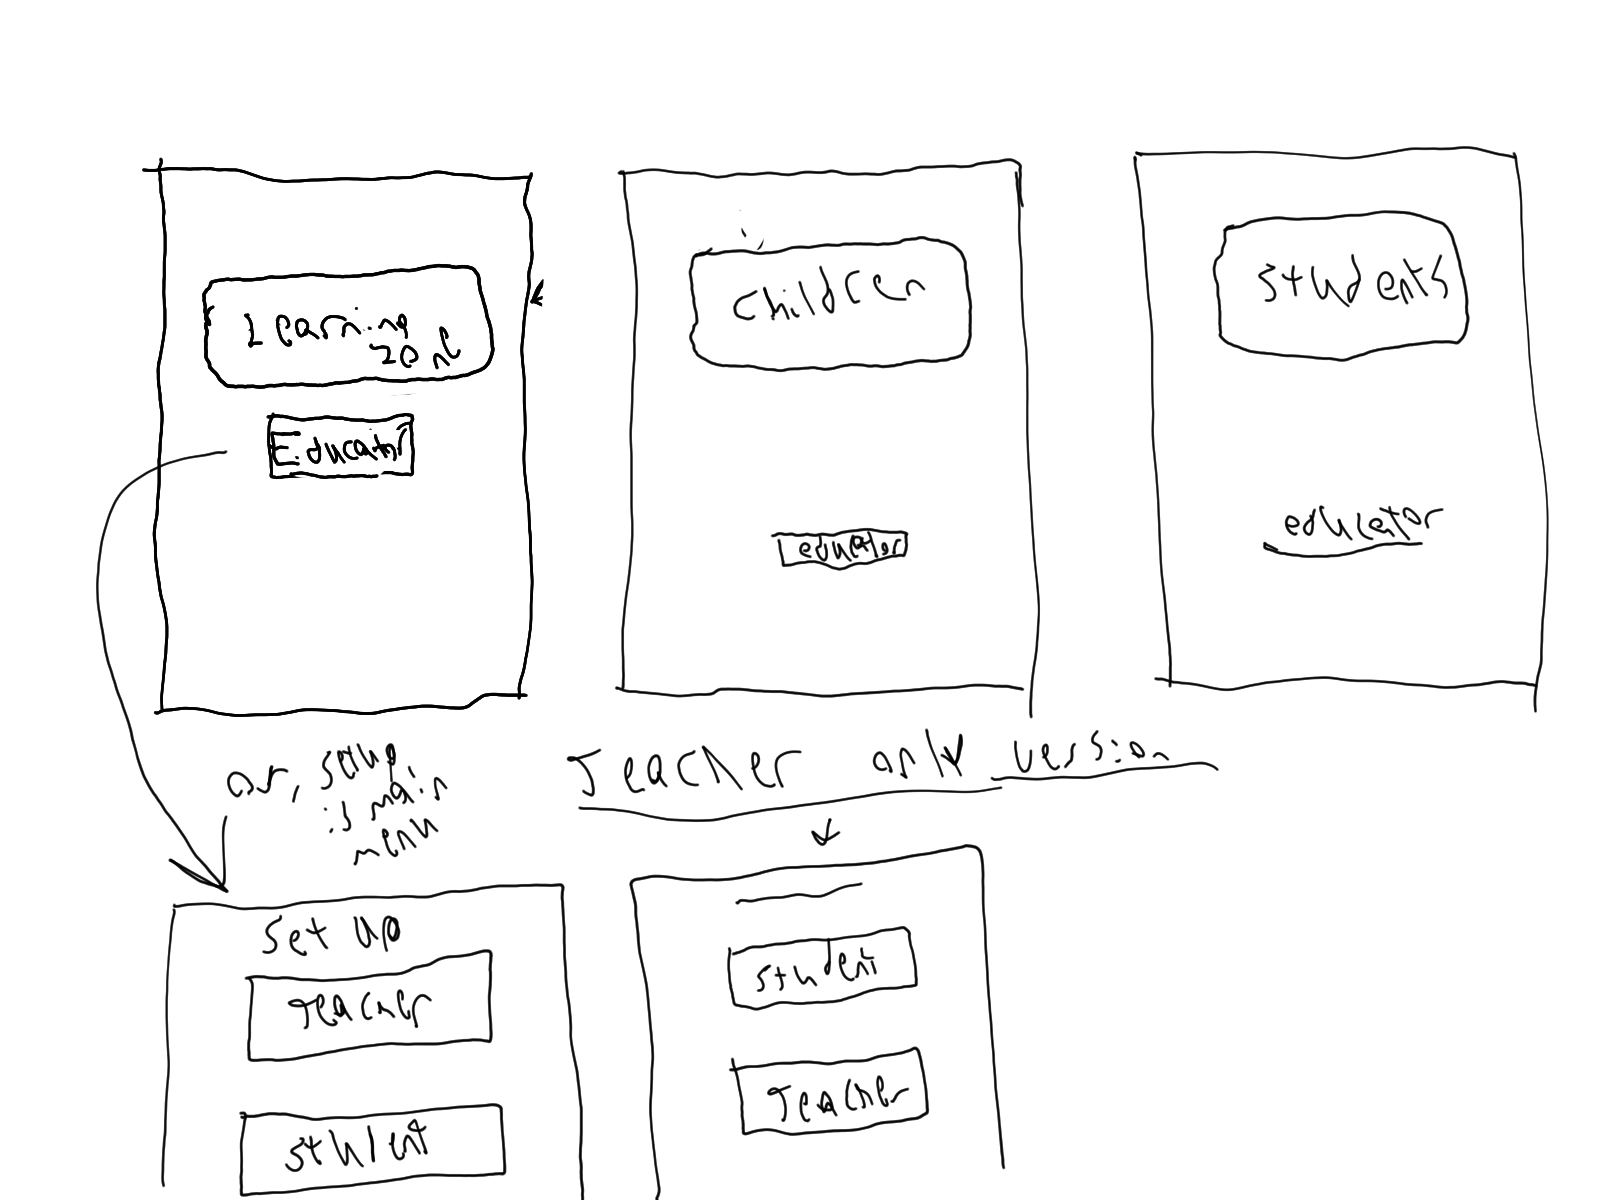 Learning
zone
Educator
Children
educator
Students
educator
or, setup
is main
menu
Teacher only version
Set up
Teacher
Student
Student
Teacher